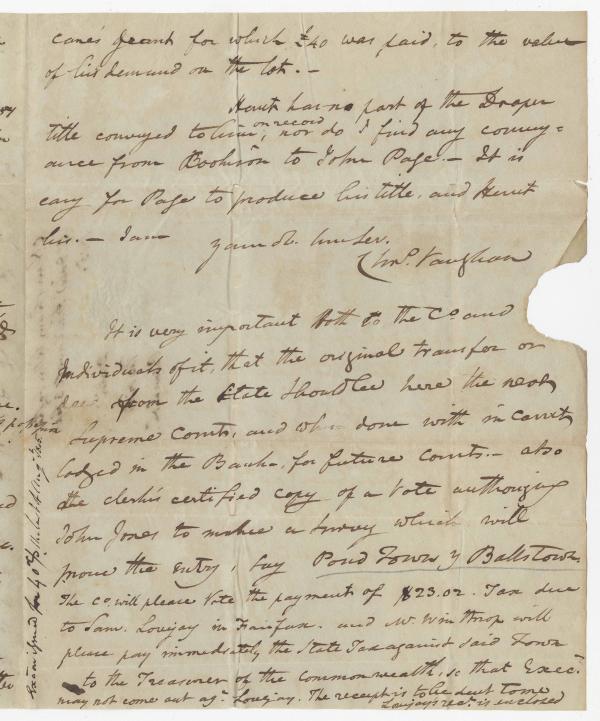 cane's grant for which £40 was paid, to the value
of his demand on the lot. -
Hewit has no part of the Draper
title conveyed to him, on record nor do I find any convey=
ance from Bookison to John Page. - It is
easy for Page to produce his title, and Hewit
his. - I am your ob. hum. ser.
Chas. Vaughan
It is very important both to the Co and
Individuals of it, that the original transfer or
from the State should be here the next
Supreme Courts, and when done with in court
lodged in the Bank, for future Courts. - also
the clerk's certified copy of a vote authorizing
John Jones to make a survey which will
prove the entry, say Pond Town y Ballstown.
The Co. will please Vote the payment of $23.02. Tax due
to Sam. Lovejay in Fairfax. and Mr. Winthrop will
please pay immediately the State Tax against said Town
to the Treasurer of the Commonwealth, so that Exec.n
may not come out ags.t Lovejay. The receipt is to be sent to me
Lovejay's rec.t is enclosed